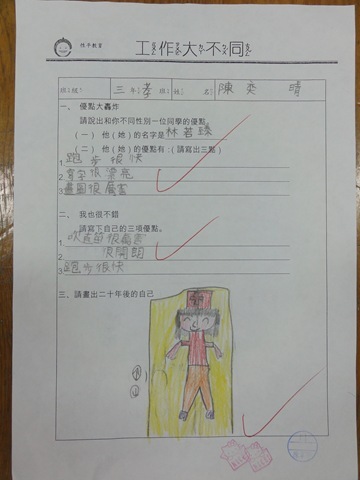 性平教育
工作大不同
班級： 三年孝班 姓名 陳奕晴
一、 優點大轟炸
請說出和你不同性別一位同學的優點
（一） 他（她）的名字是 林若臻
（二） 他（她）的優點有：（請寫出三點）
1. 跑步很快
2. 寫字很漂亮
3. 畫圖很厲害
二、 我也很不錯
請寫下自己的三項優點。
1. 吹直笛很厲害
2. 很開朗
3. 跑步很快
三、請畫出二十年後的自己